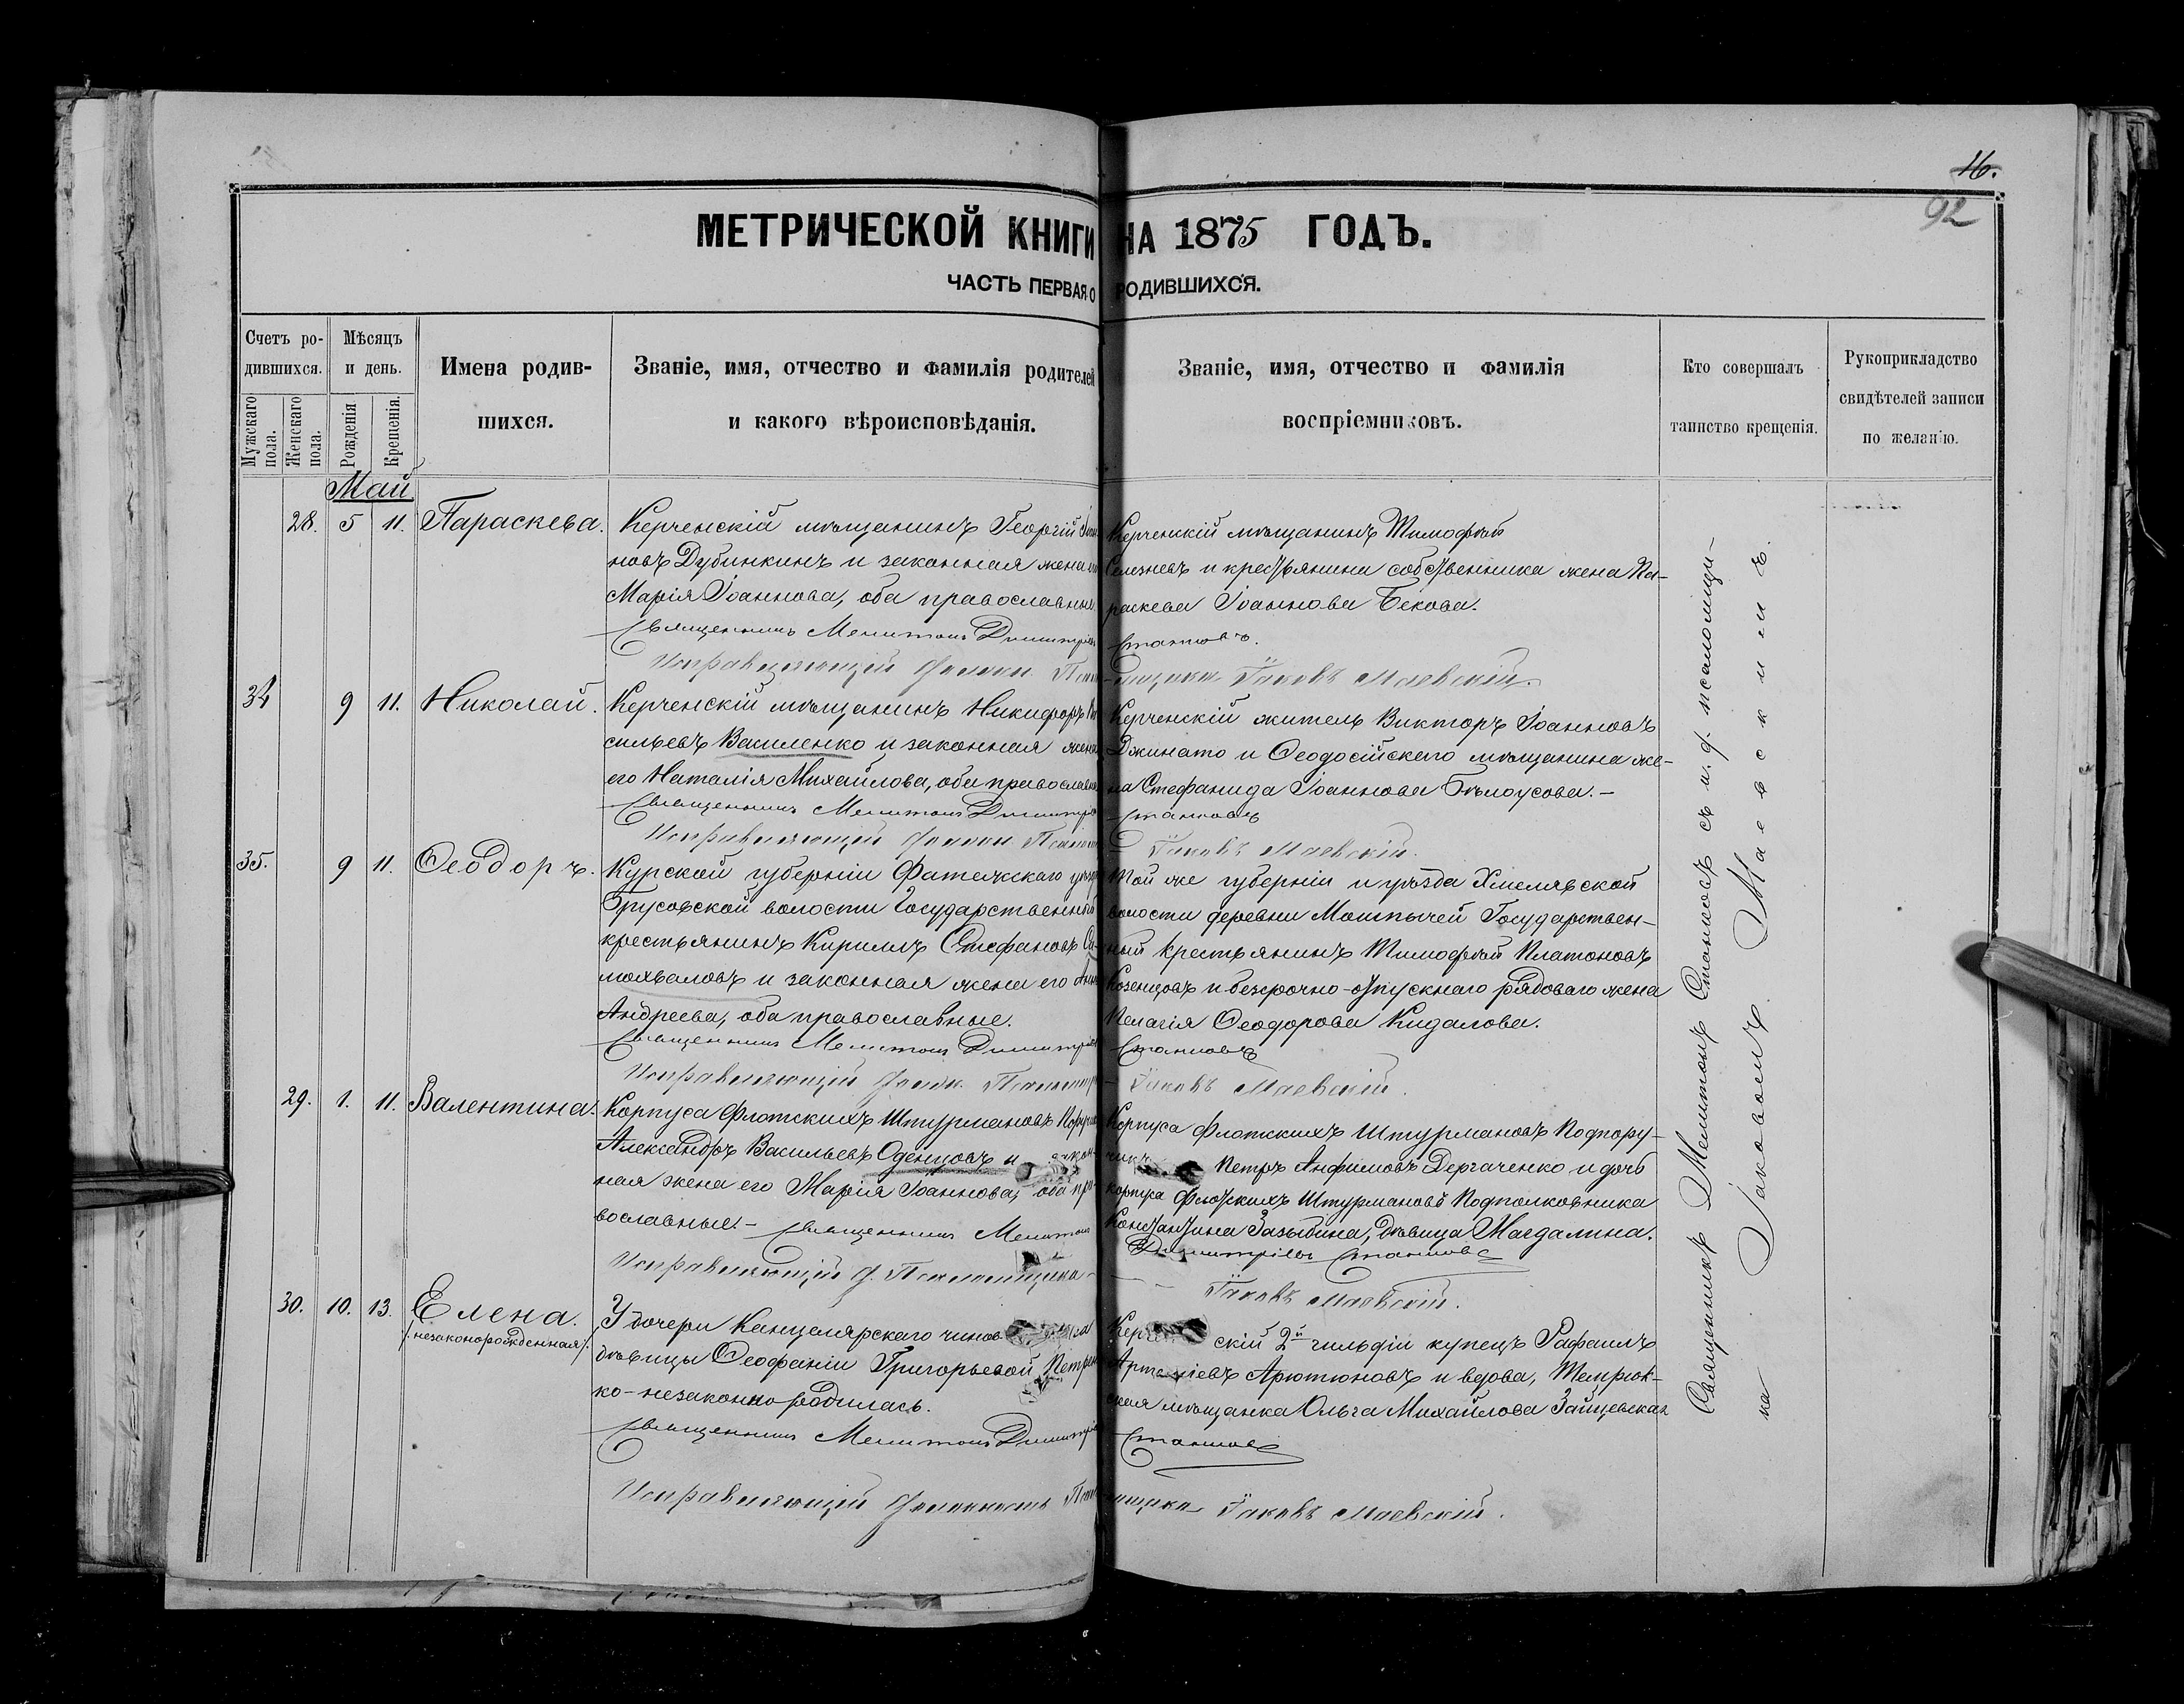 16.
92
МЕТРИЧЕСКОЙ КНИГИ НА 1875 ГОДЪ.
ЧАСТЬ ПЕРВАЯ О РОДИВШИХСЯ.
Счетъ ро-
дившихся.
Мужскаго пола.
Женскаго пола.
Мѣсяцъ
и день.
Рожденія
Крещенія.
Имена родив-
шихся.
Званіе, имя, отчество и фамилія родителей
и какого вѣроисповѣданія.
Званіе, имя, отчество и фамилія
воспріемниковъ.
Кто совершалъ
таинство крещенія.
Рукоприкладство
свидѣтелей записи
по желанію.
Май
28. 5 11. Параскева.
Керченскій мѣщанинъ Георгій
новъ Дубинкинъ и законная жена
Марія Іоаннова, оба православные.
Керченскій мѣщанинъ Тимофѣй
Селезневъ и крестьянина собственника жена Па-
раскева Іоаннова Бекова.
Священникъ Мелитонъ Димитріевъ Станковъ.
Исправляющій должн. Іаковъ Маевскій.
34 9 11. Николай.
Керченскій мѣщанинъ Никифоръ Ва
сильевъ Василенко и законная жена
его Наталія Михайлова, оба православные
Керченскій житель Викторъ Іоанновъ
Джинато и Ѳеодосійскаго мѣщанина же-
на Стефанида Іоаннова Бѣлоусова.-
Священникъ Мелитонъ Димитріевъ Станковъ
Исправляющій должн. Іаковъ Маевскій.
35. 9 11. Ѳеодоръ.
Курской губерніи Фатежскаго уѣзда
волости Государственный
крестьянинъ Кириллъ Стефановъ Са-
мохваловъ и законная жена его Анна
Андреева, оба православные.
Той же губерніи и уѣзда Хмелявской
волости деревни Государствен-
ный крестьянинъ Тимофѣй Платоновъ
Козенцовъ и безсрочно-отпускнаго рядоваго жена
Пелагія Ѳеодорова Кидалова.
Священникъ Мелитонъ Димитріевъ Станковъ
Исправляющій должн. Іаковъ Маевскій.
29. 1. 11. Валентина.
Корпуса Флотскихъ Штурмановъ Поручикъ
Александръ Васильевъ Оденцовъ и закон-
ная жена его Марія Іоаннова, оба пра-
вославные.-
Корпуса Флотскихъ Штурмановъ Подпору-
чикъ Петръ Анфимовъ Дергаченко и дочь
корпуса Флотскихъ Штурмановъ Подполковника
Константина Зазыбина, дѣвица Магдалина.
Священникъ Мелитонъ Димитріевъ Станковъ
Исправляющій д. Псаломщика Іаковъ Маевскій.
30. 10. 13. Елена.
/незаконорожденная/
У дочери Канцелярскаго
дѣвицы Ѳеофаніи Григорьевой Петрен
ко-незаконно родилась.
Керченскій 2й гильдіи купецъ Рафаилъ
Артемьевъ Арютюновъ и вдова, Темрюк-
ская мѣщанка Ольга Михайлова Зайцевская
Священникъ Мелитонъ Димитріевъ Станковъ
Исправляющій должность Псаломщика Іаковъ Маевскій.
Священникъ Мелитонъ Станковъ съ и. д. псаломщи-
ка Іаковомъ Маевскимъ.